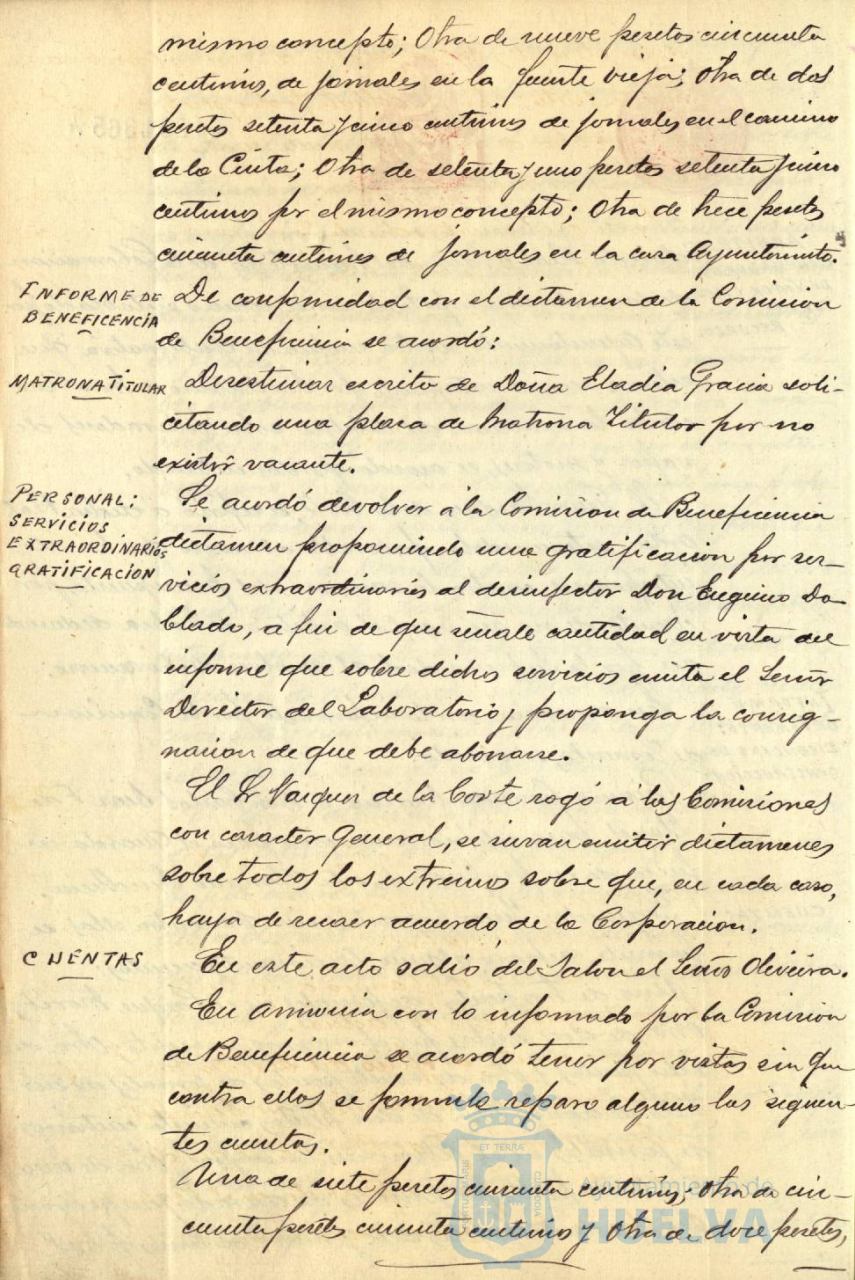 mismo concepto; Otra de nueve pesetas cincuenta
centimos, de jornales en la fuente vieja; Otra de dos
pesetas setenta y cinco centimos de jornales en el camino
de la Cinta; Otra de setenta y una pesetas setenta y cinco
centimos por el mismo concepto; Otra de trece pesetas
cincuenta centimos de jornales en la casa Ayuntamiento.
INFORME DE
BENEFICENCIA
De conformidad con el dictamen de la Comision
de Beneficencia se acordó:
MATRONA TITULAR
Desestimar escrito de Doña Eladia Gracia soli-
citando una plaza de Matrona Titular por no
existir vacante.
PERSONAL:
SERVICIOS
EXTRAORDINARIOS
GRATIFICACION
Se acordó devolver á la Comision de Beneficencia
dictamen proponiendo una gratificacion por ser-
vicios extraordinarios al desinfector Don Eugenio Do-
blado, a fin de que señale cantidad en vista del
informe que sobre dichos servicios emita el Señor
Director del Laboratorio y proponga la consig-
nacion de que debe abonarse.
El Sr Vazquez de la Corte rogó á las Comisiones
con caracter general, se sirvan emitir dictamenes
sobre todos los extremos sobre que, en cada caso,
haya de recaer acuerdo de la Corporacion.
CUENTAS
En este acto salió del Salon el Señor Oliveira.
En armonia con lo informado por la Comision
de Beneficencia se acordó tener por vistas sin que
contra ellas se formule reparo alguno las siguien-
tes cuentas.
Una de siete pesetas cincuenta centimos; Otra de cin-
cuenta pesetas cincuenta centimos y Otra de doce pesetas,
ET TERRA
Ayuntamiento de
HUELVA